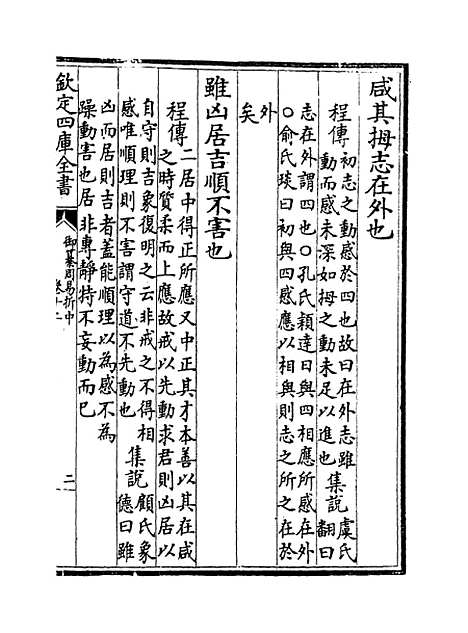 咸其拇志在外也
程傳初志之動感於四也故曰在外志雖
動而感未深如拇之動未足以進也
集說虞氏
翻曰
志在外謂四也○孔氏穎達曰與四相應所感在外
○俞氏琰曰初與四感應以相與則志之所之在於
外
矣
雖凶居吉順不害也
程傳二居中得正所應又中正其才本善以其在咸
之時質柔而上應故戒以先動求君則凶居以
自守則吉象復明之云非戒之不得相
感唯順理則不害謂守道不先動也
集說顧氏象
德曰雖
凶而居則吉者蓋能順理以為感不為
躁動害也居非專靜持不妄動而已
欽定四庫全書
御纂周易折中
卷十二
二